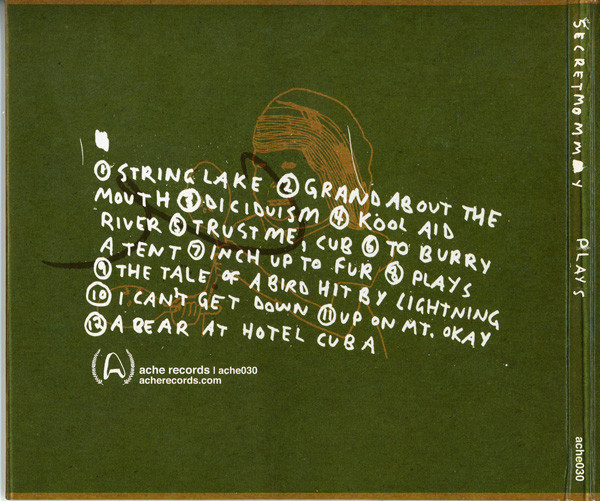 ① STRING LAKE ② GRAND ABOUT THE
MOUTH ③ DICIDUISM ④ KOOL AID
RIVER ⑤ TRUST ME, CUB ⑥ TO BURRY
A TENT ⑦ INCH UP TO FUR ⑧ PLAYS
⑨ THE TALE OF A BIRD HIT BY LIGHTNING
⑩ I CAN'T GET DOWN ⑪ UP ON MT. OKAY
⑫ A BEAR AT HOTEL CUBA
ache records | ache030
acherecords.com
SECRETMOMMY PLAYS
ache030